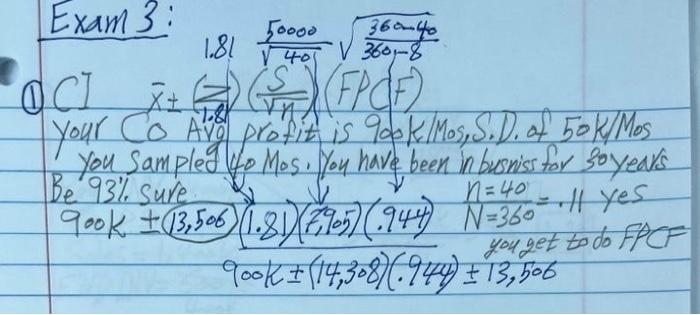 Exam 3:
1.81 50000/√40 √(360-40/360-8)
① CI x̄ ± (Z) (S/√n) (FPCF)
1.81
Your Co Avg profit is 900K/Mos, S.D. of 50K/Mos
You Sampled 40 Mos. You have been in busniss for 30 years
Be 93% Sure. n=40
900K ± (13,506) (1.81)(7,905)(.944) N=360 = .11 Yes
you get to do FPCF
900K ± (14,308)(.944) ± 13,506